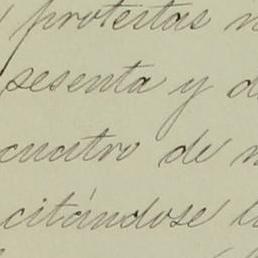 protestas
sesenta y
cuatro de
citándose